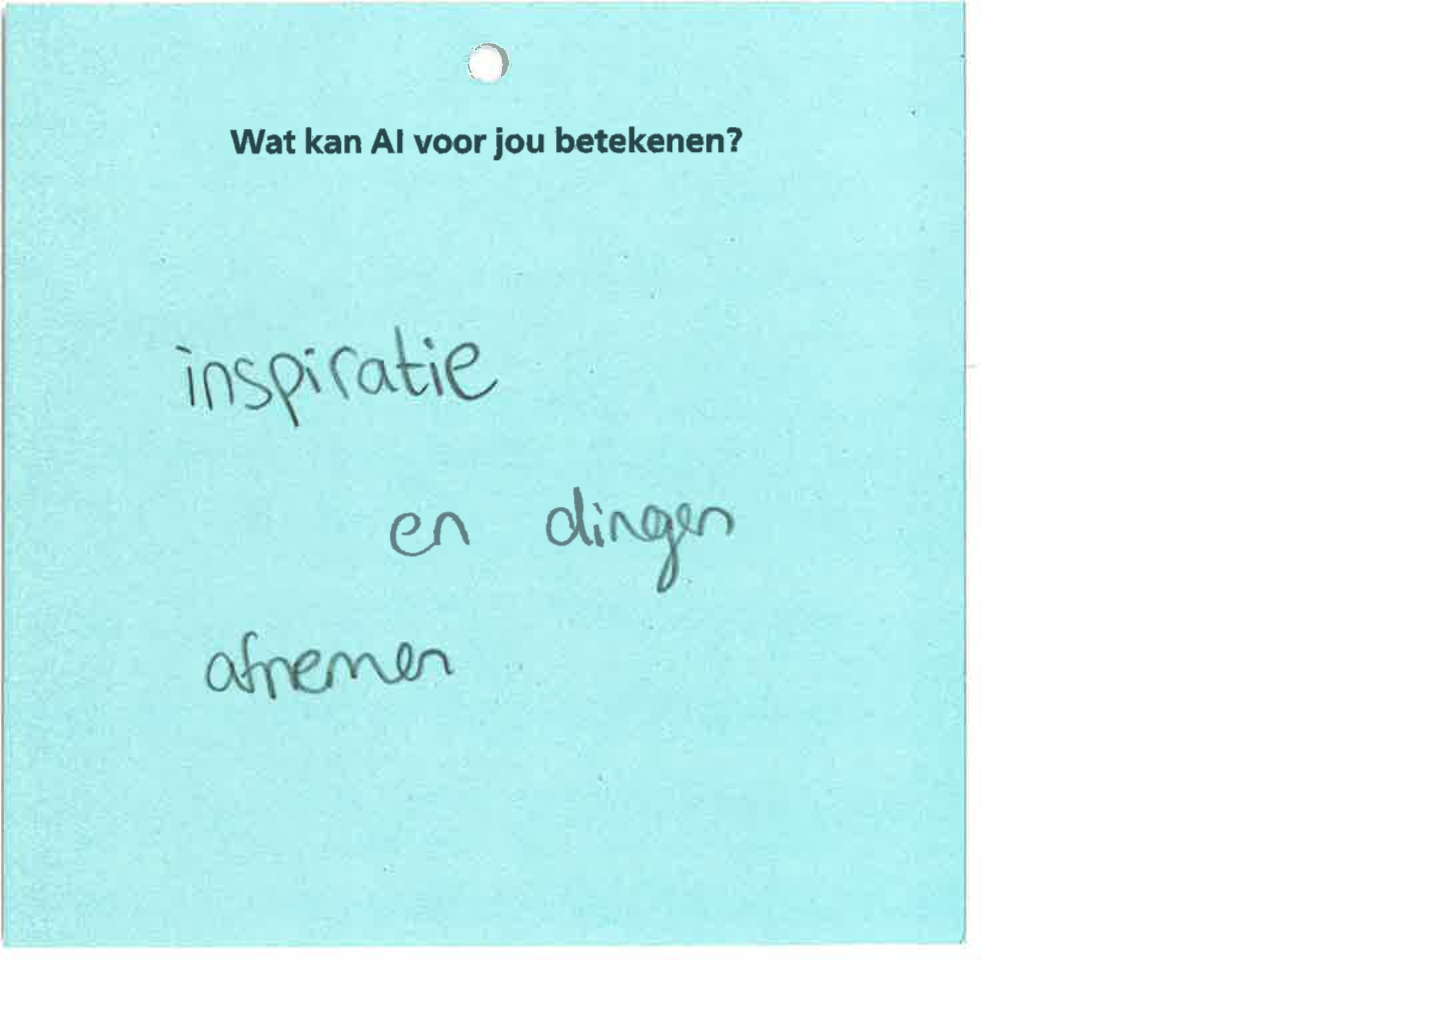 Wat kan AI voor jou betekenen?
inspiratie
en dingen
afnemen